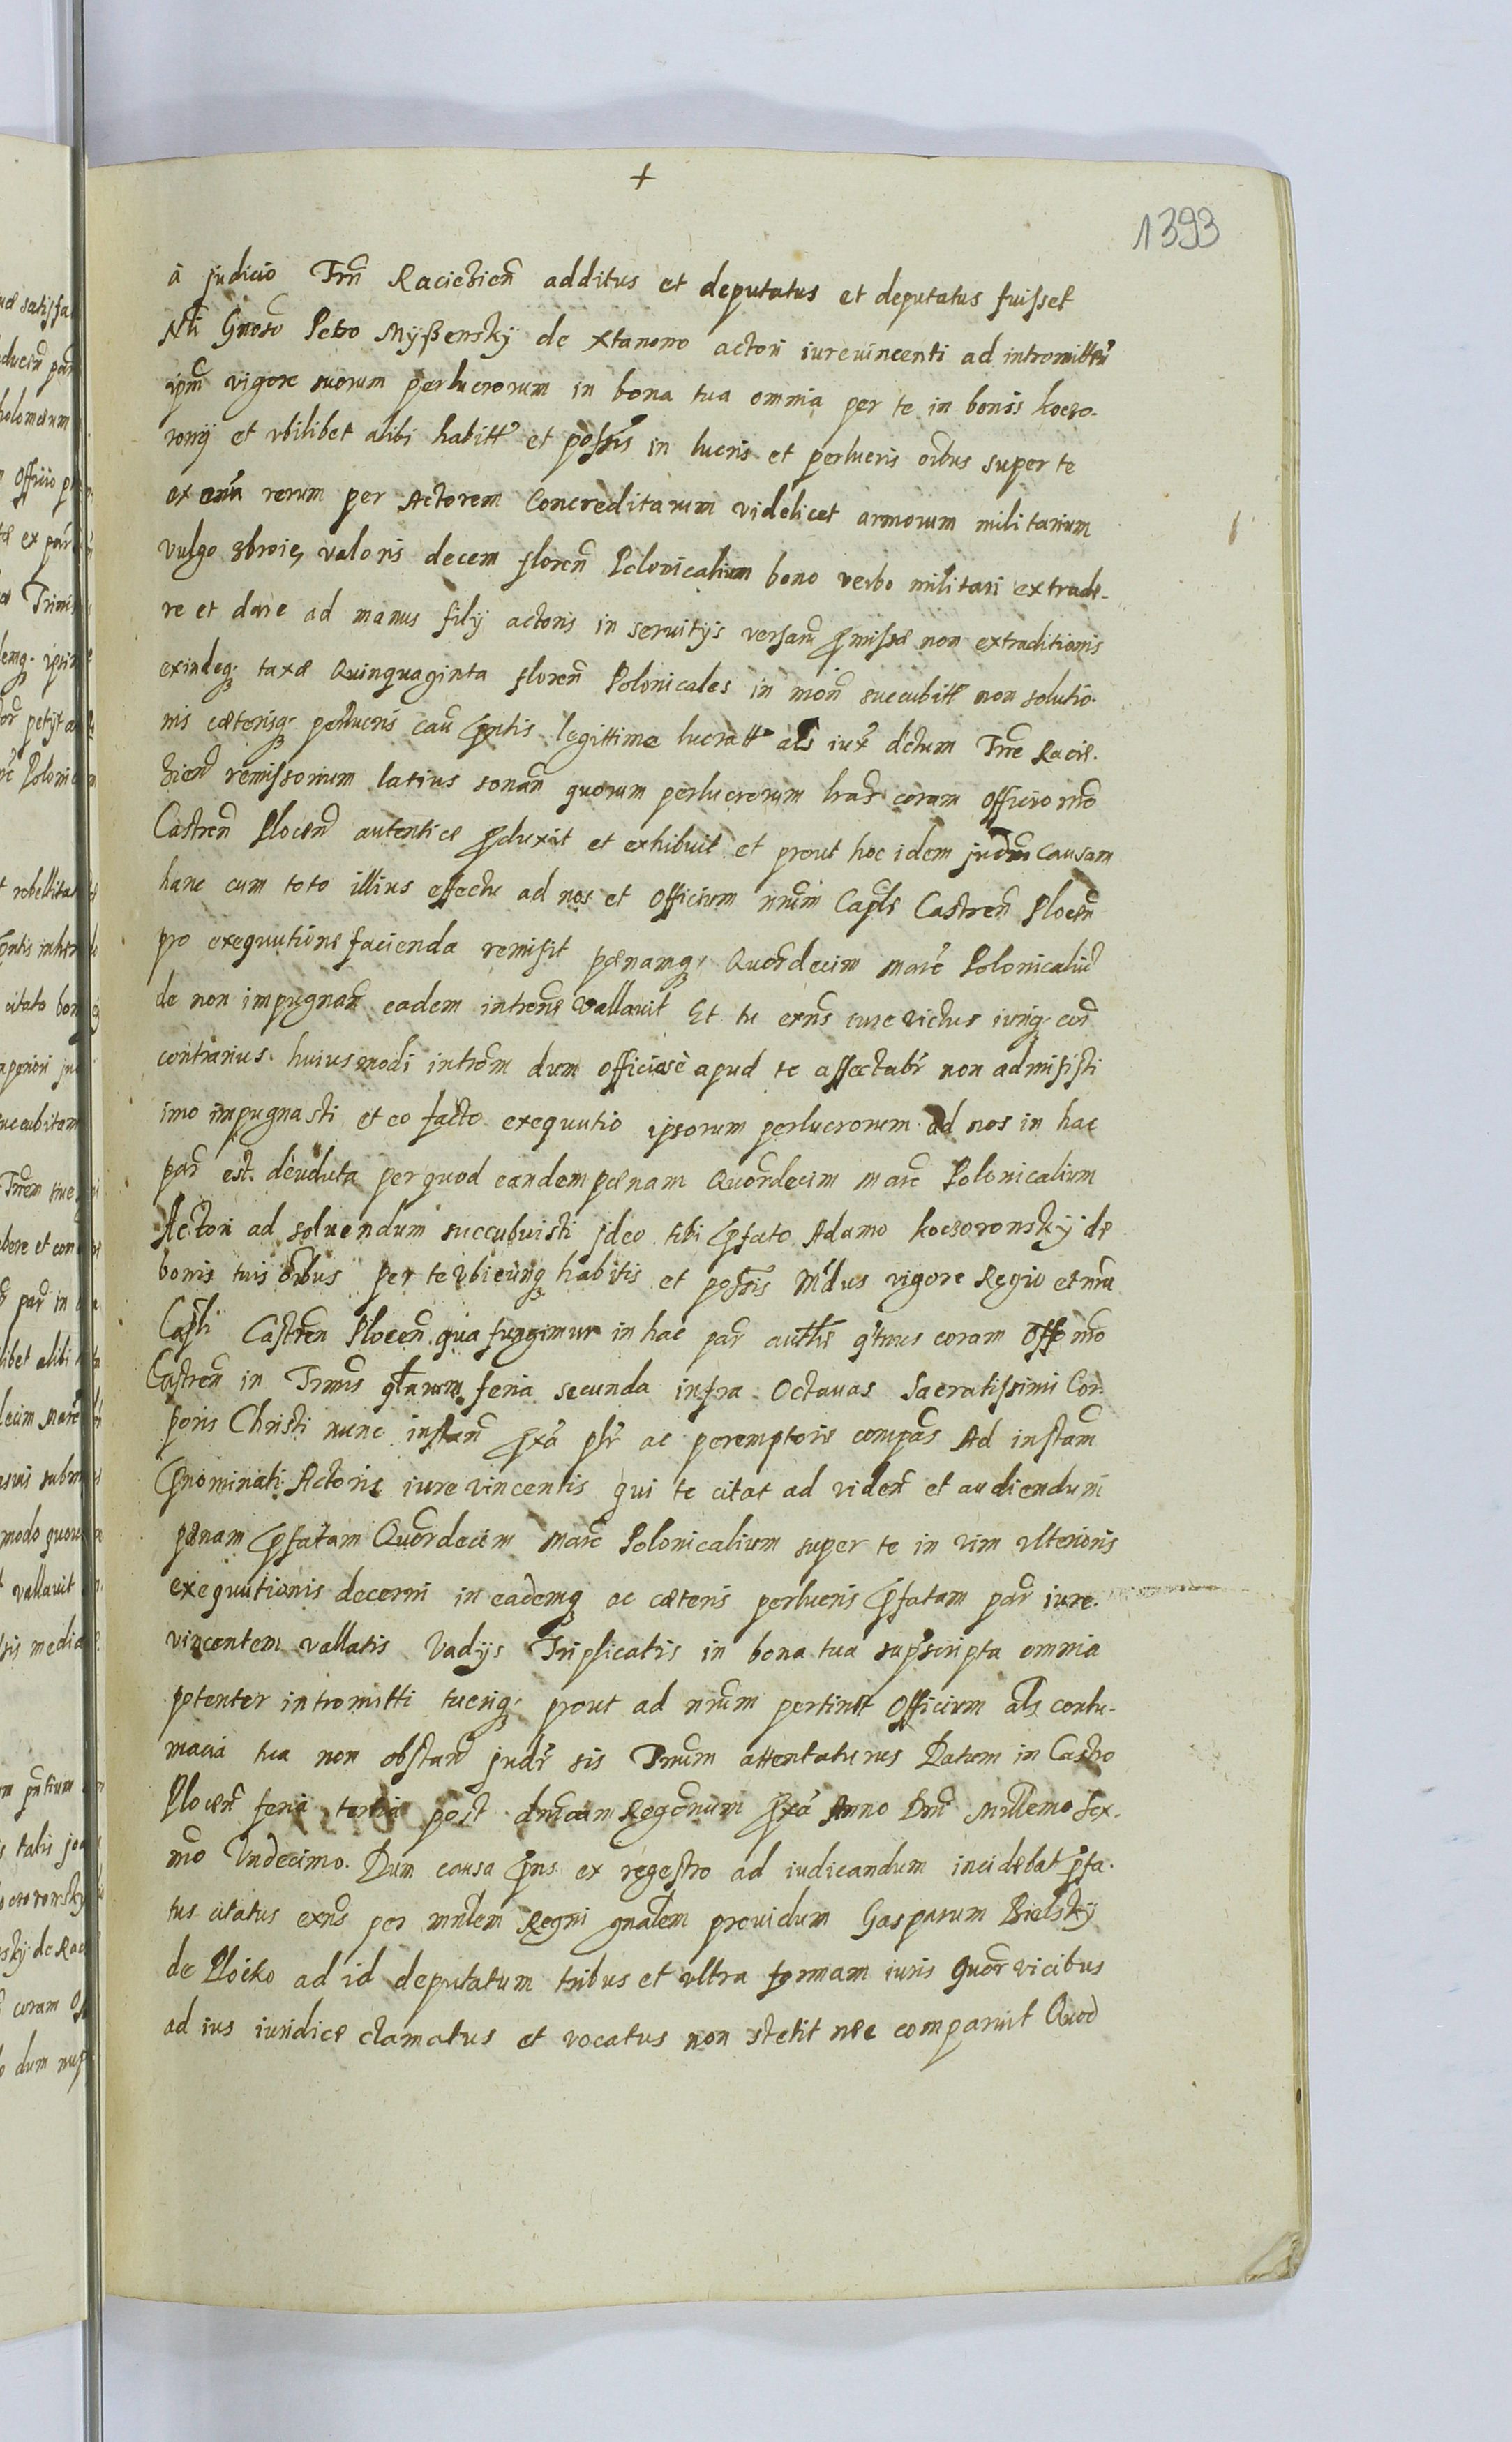 +
1393
à judicio Trñ Raciezieñ additus et deputatus et deputatus fuisset
Gnoso Petro Myßensky de Xtanono actori iurevincenti ad intromittñ
ipm vigore suorum perlucrorum in bona tua omnia per te in bonis koczo-
rony et vbilibet alibi habitt et possis in lucris et perlucris oībus super te
ex rerum per Actorem Concreditarum videlicet armorum militarium
vulgo zbroie, valoris decem floreñ Polonicalium bono verbo militari extrade-
re et dare ad manus filij actoris in seruitijs versañ pmissæ non extraditionis
exindeq; taxæ Quinquaginta floreñ Polonicales in moñ succubitt non solutio-
nis cæterisq; perlucris cau pntis legittime lucratt als iux dctum Trñe Racię-
zieñ remissorium latius sonañ quorum perlucrorum lras coram officio nro
Castreñ Ploceñ autentice pduxit et exhibuit et prout hoc idem judm causam
hanc cum toto illius effectu ad nos et Officium nrum Capls Castreñ Ploceñ
pro exequutione facienda remisit pænamq; Quordecim marc Polonicaliū
de non impugnañ eadem introñe vallauit Et tu exns iure victus iuriq; coī
contrarius huiusmodi introm dum officiosè apud te affectabr non admisisti
imo impugnasti et eo facto exequutio ipsorum perlucrorum ad nos in hac
par est deuoluta per quod eandem pænam Quordecim marc Polonicalium
Actori ad soluendum succubuisti jdeo tibi pfato Adamo koczoronsky de
bonis tuis oībus per te vbicunq; habitis et possis Mdus vigore Regio et nra
Capli Castreñ Ploceñ qua fungimur in hac par autthe qtnus coram Off nro
Castreñ in Trmis qlnarum feria secunda infra Octauas Sacratissimi Cor-
poris Christi nunc instañ pxa plr ac peremptorie compas Ad instam
pnominati Actoris iure vincentis qui te citat ad videñ et audiendum
pænam pfatam Quordecim marc Polonicalium super te in vim vlterioris
exequutionis decerni in eademq; ac cæteris perlucris pfatam par iure-
vincentem vallatis Vadijs Triplicatis in bona tua supscripta omnia
potenter intromitti tueriq; prout ad nrum pertinet Officium als contu-
macia tua non obstañ judr sis Trmum attentaturus Datum in Castro
Ploceñ feria tertia post dnicam Rogonum pxa Anno Dni Millemo Sex-
mo Vndecimo. Dum causa pns ex regestro ad iudicandum incidebat pfa-
tus citatus exns per mnlem Regni gnalem prouidum Gasparum Bielsky
de Plocko ad id deputatum tribus et vltra formam iuris Quor vicibus
ad ius iuridice clamatus et vocatus non stetit nec comparuit Quod